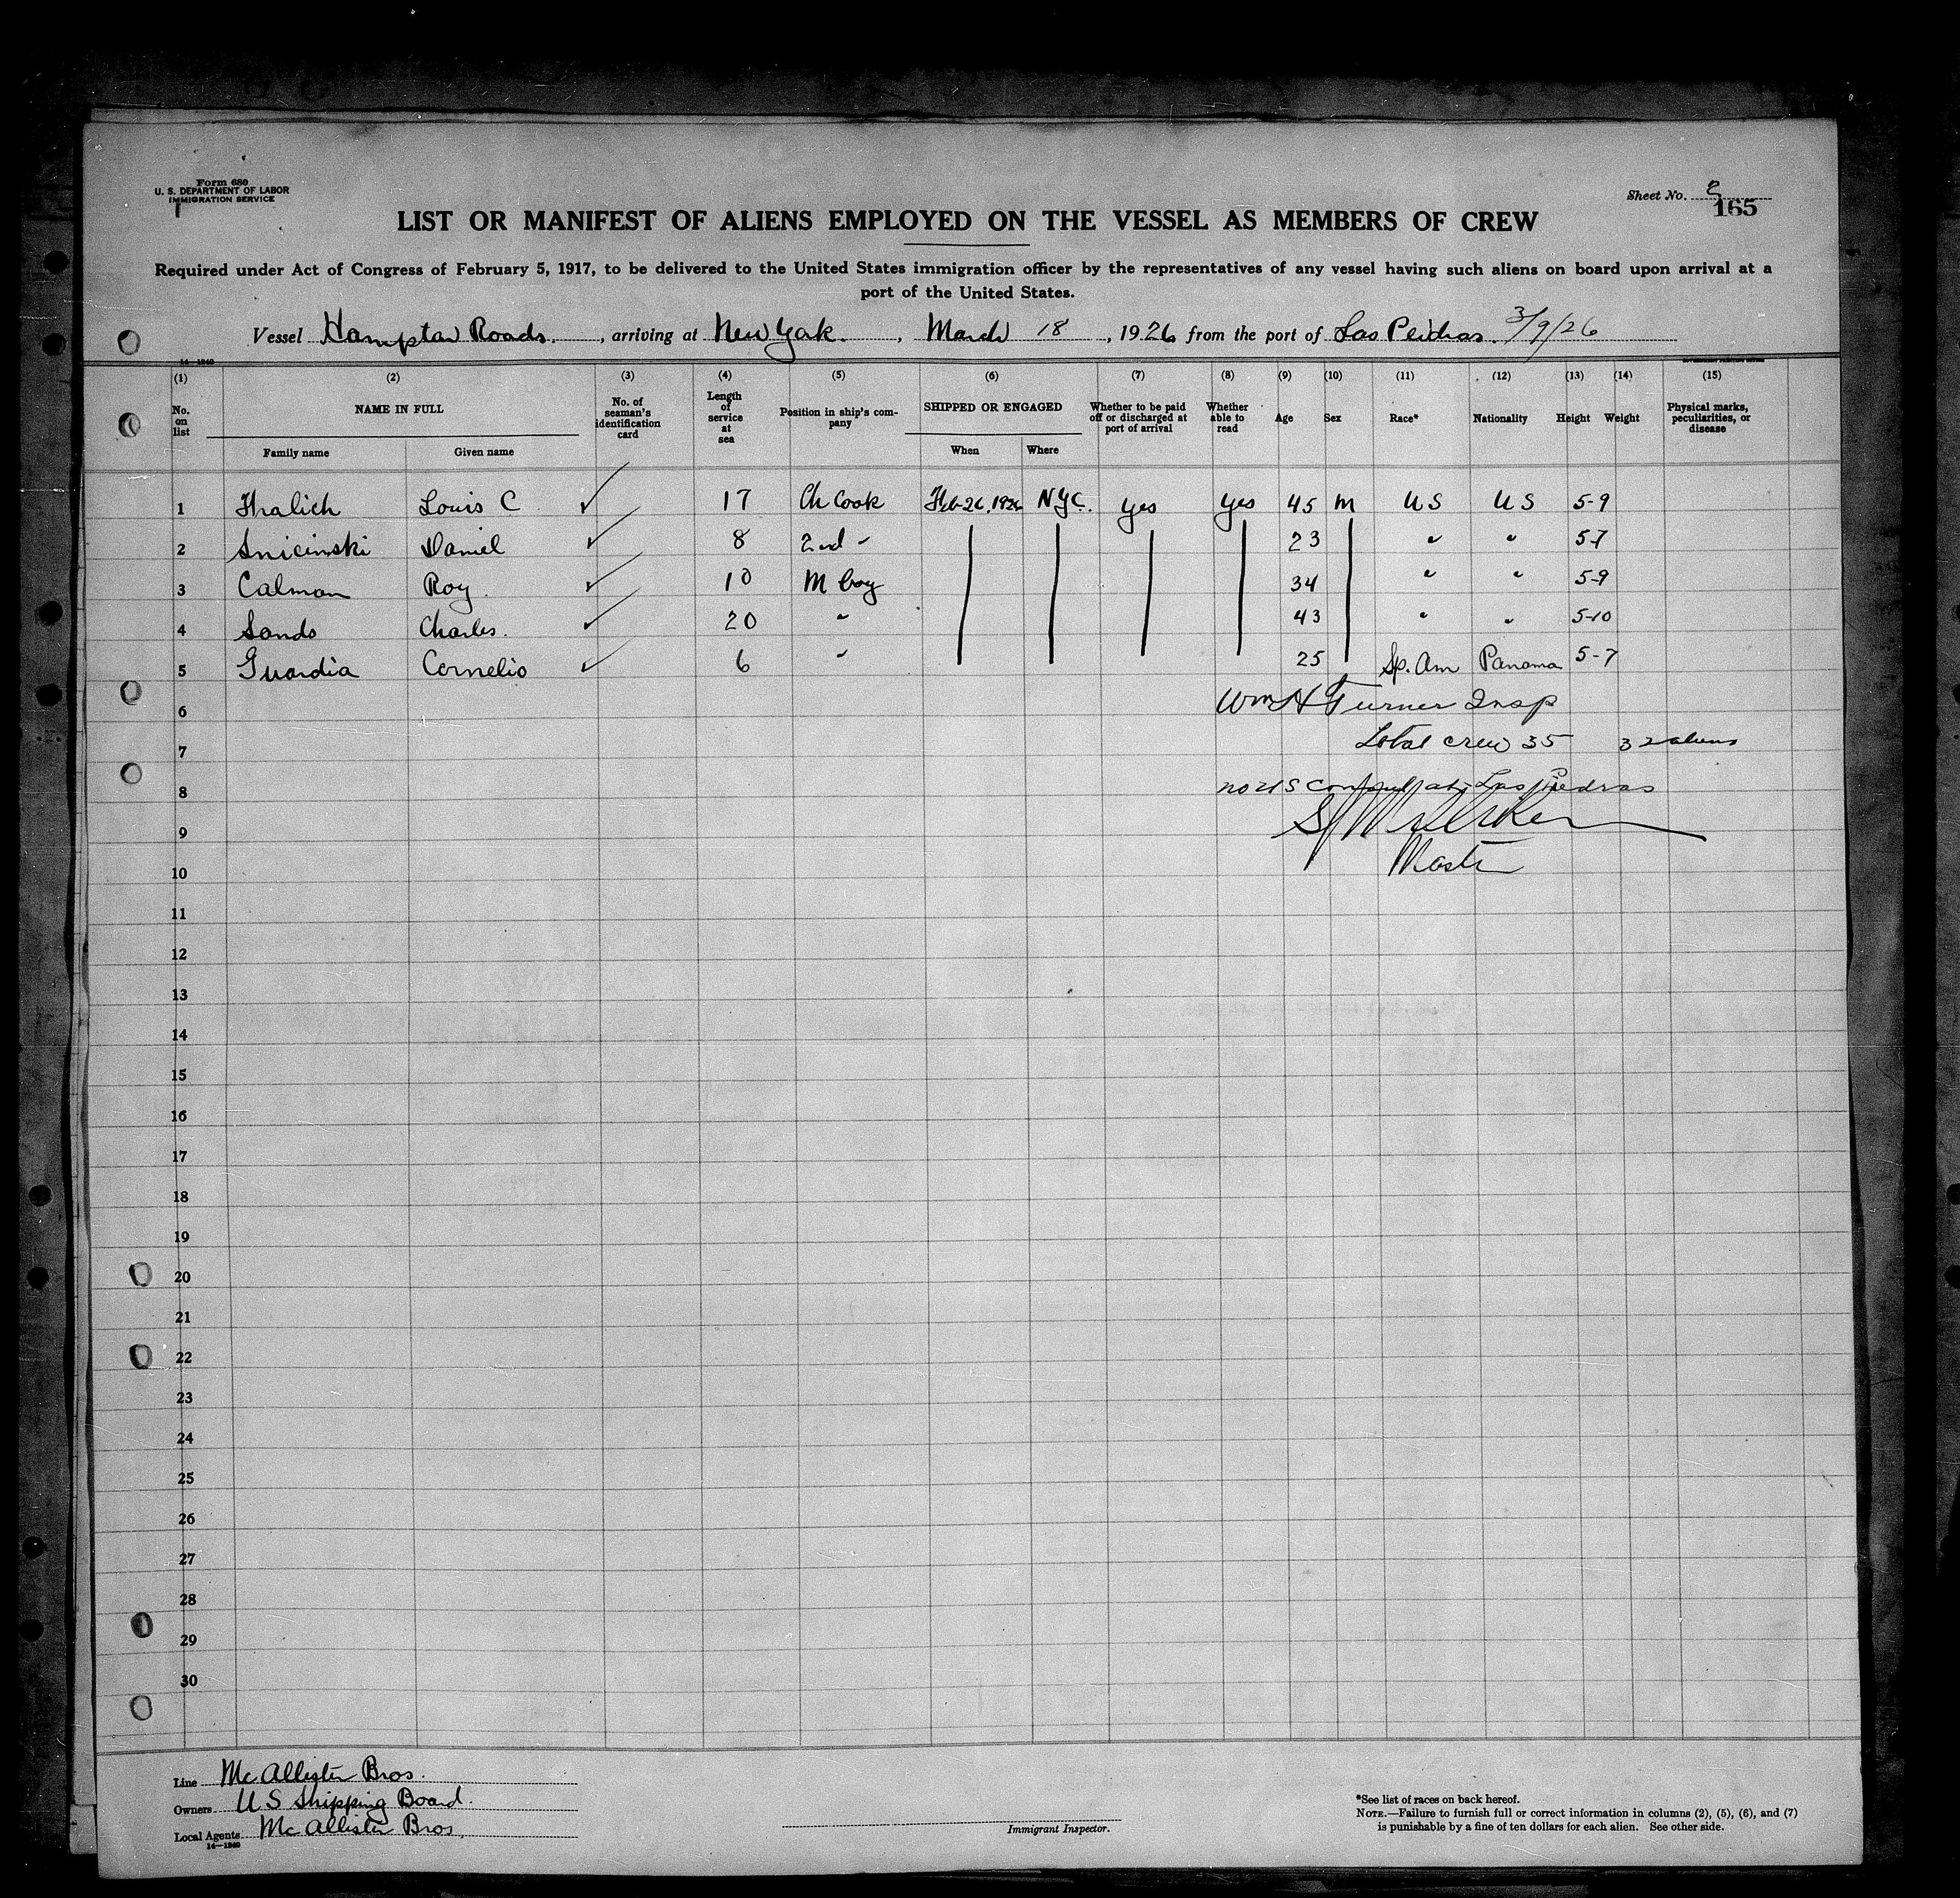 Form 680
U. S. DEPARTMENT OF LABOR
IMMIGRATION SERVICE
Sheet No.
165
LIST OR MANIFEST OF ALIENS EMPLOYED ON THE VESSEL AS MEMBERS OF CREW
Required under Act of Congress of February 5, 1917, to be delivered to the United States immigration officer by the representatives of any vessel having such aliens on board upon arrival at a
port of the United States.
Vessel Hampton Roads, arriving at New York, March 18, 1926 from the port of Las Peidras. 3/9/26
14—1240
(1) (2) (3) (4) (5) (6) (7) (8) (9) (10) (11) (12) (13) (14) (15)
No. on list
NAME IN FULL
Family name
Given name
No. of seaman's identification card
Length of service at sea
Position in ship's company
SHIPPED OR ENGAGED
When
Where
Whether to be paid off or discharged at port of arrival
Whether able to read
Age
Sex
Race*
Nationality
Height
Weight
Physical marks, peculiarities, or disease
1 Louis C ✓ 17 Ch Cook Feb-26, 1926 NYC. Yes Yes 45 M US US 5-9
2 Snicinski Daniel ✓ 8 2nd " 23 " " 5-7
3 Calman Roy ✓ 10 M boy 34 " " 5-9
4 Sands Charles. ✓ 20 " 43 " " 5-10
5 Guardia Cornelio ✓ 6 " 25 Sp. Am Panama 5-7
6 Wm H Turner Insp
7 Total crew 35 32 aliens
8 no US Consul at Las Piedras
9
10 Master
11
12
13
14
15
16
17
18
19
20
21
22
23
24
25
26
27
28
29
30
Line McAllister Bros.
Owners U S Shipping Board.
Local Agents McAllister Bros.
14—1240
Immigrant Inspector.
*See list of races on back hereof.
NOTE.—Failure to furnish full or correct information in columns (2), (5), (6), and (7)
is punishable by a fine of ten dollars for each alien. See other side.